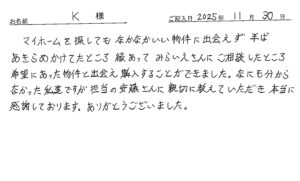 お名前 K 様 ご記入日 2025年 11月 30日
マイホームを探しても なかなかいい物件に出会えず 半ば
あきらめかけてたところ 縁あって みらいえさんに ご相談したところ
希望にあった物件と出会え購入することができました。なにも分から
なかった私達ですが担当の安藤さんに親切に教えていただき 本当に
感謝しております。ありがとうございました。